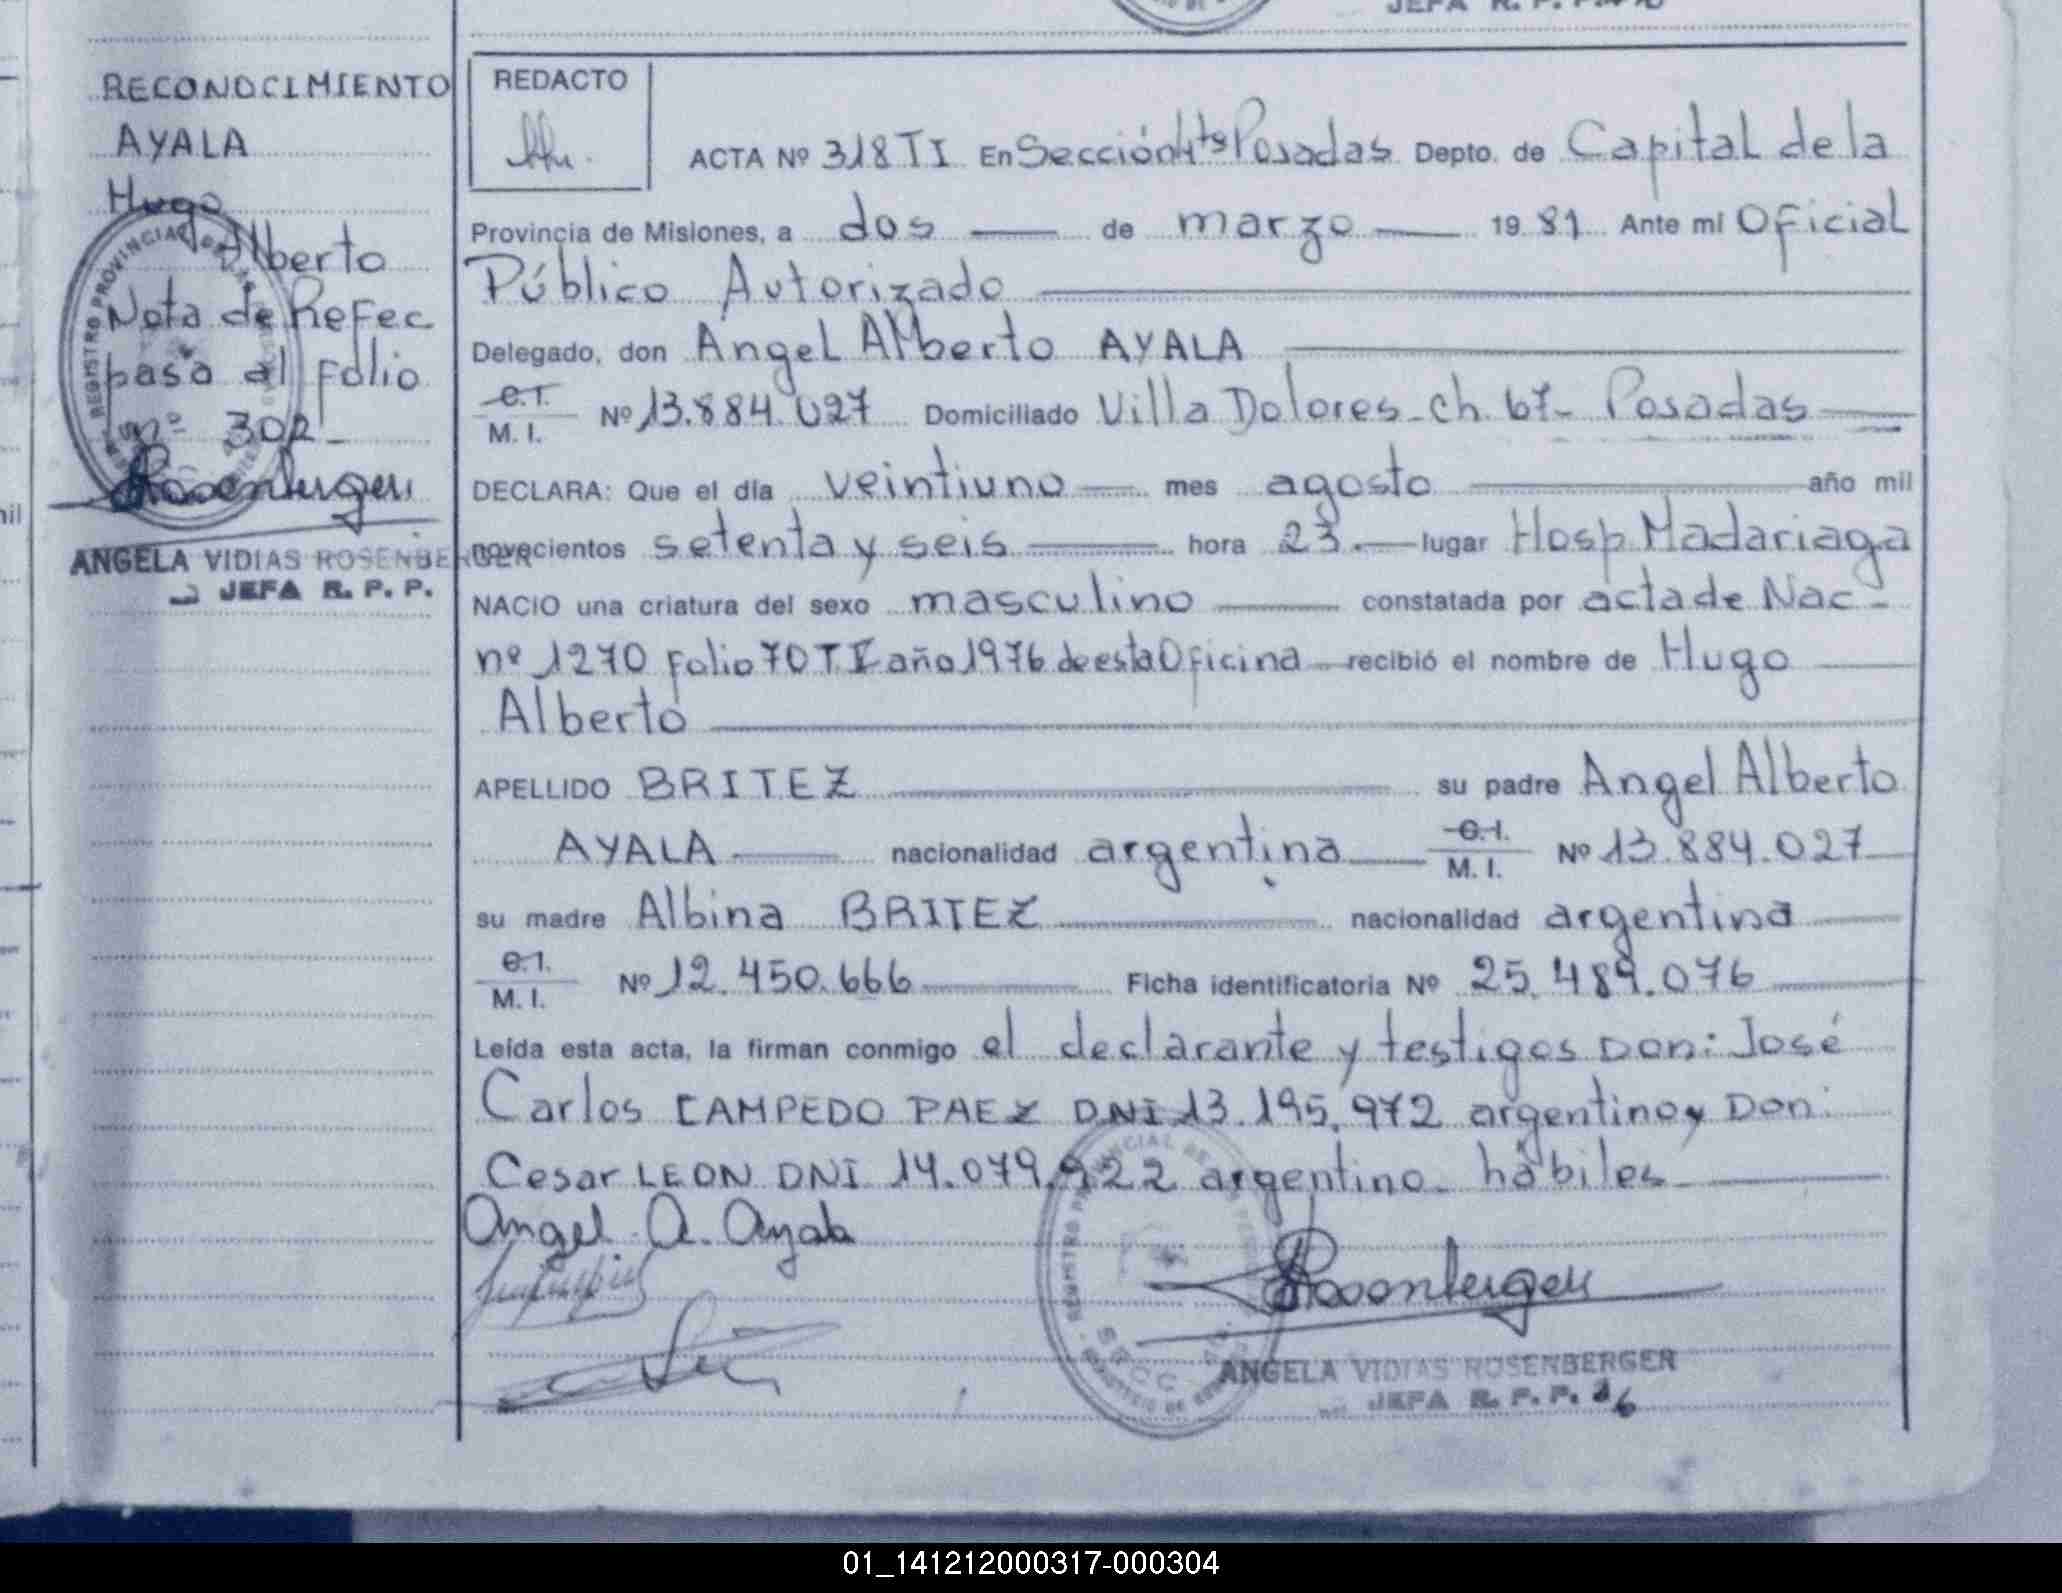 JEFA R. P. P.
RECONOCIMIENTO
AYALA
Hugo
Alberto
Nota de Refec
pasa al folio
nº 302
Rosenberger
ANGELA VIDIAS ROSENBERGER
JEFA R. P. P.
REDACTO
ACTA Nº 318 TI En Sección 4ta Posadas Depto. de Capital de la
Provincia de Misiones, a dos de marzo 1981 Ante mí Oficial
Público Autorizado
Delegado, don Angel Alberto AYALA
C.I. M. I. Nº 13.884.027 Domiciliado Villa Dolores - ch. 67 - Posadas
DECLARA: Que el día veintiuno mes agosto año mil
novecientos setenta y seis hora 23. lugar Hosp. Madariaga
NACIO una criatura del sexo masculino constatada por acta de Nac -
nº 1270 folio 70 T I año 1976 de esta Oficina recibió el nombre de Hugo
Alberto
APELLIDO BRITEZ su padre Angel Alberto
AYALA nacionalidad argentina C.I. M. I. Nº 13.884.027
su madre Albina BRITEZ nacionalidad argentina
C.I. M. I. Nº 12.450.666 Ficha identificatoria Nº 25.489.076
Leída esta acta, la firman conmigo el declarante y testigos Don: José
Carlos CAMPEDO PAEZ DNI 13.195.972 argentino y Don:
Cesar LEON DNI 14.079.922 argentino - hábiles
Angel A. Ayala
Rosenberger
ANGELA VIDIAS ROSENBERGER
JEFA R. P. P.
01_141212000317-000304